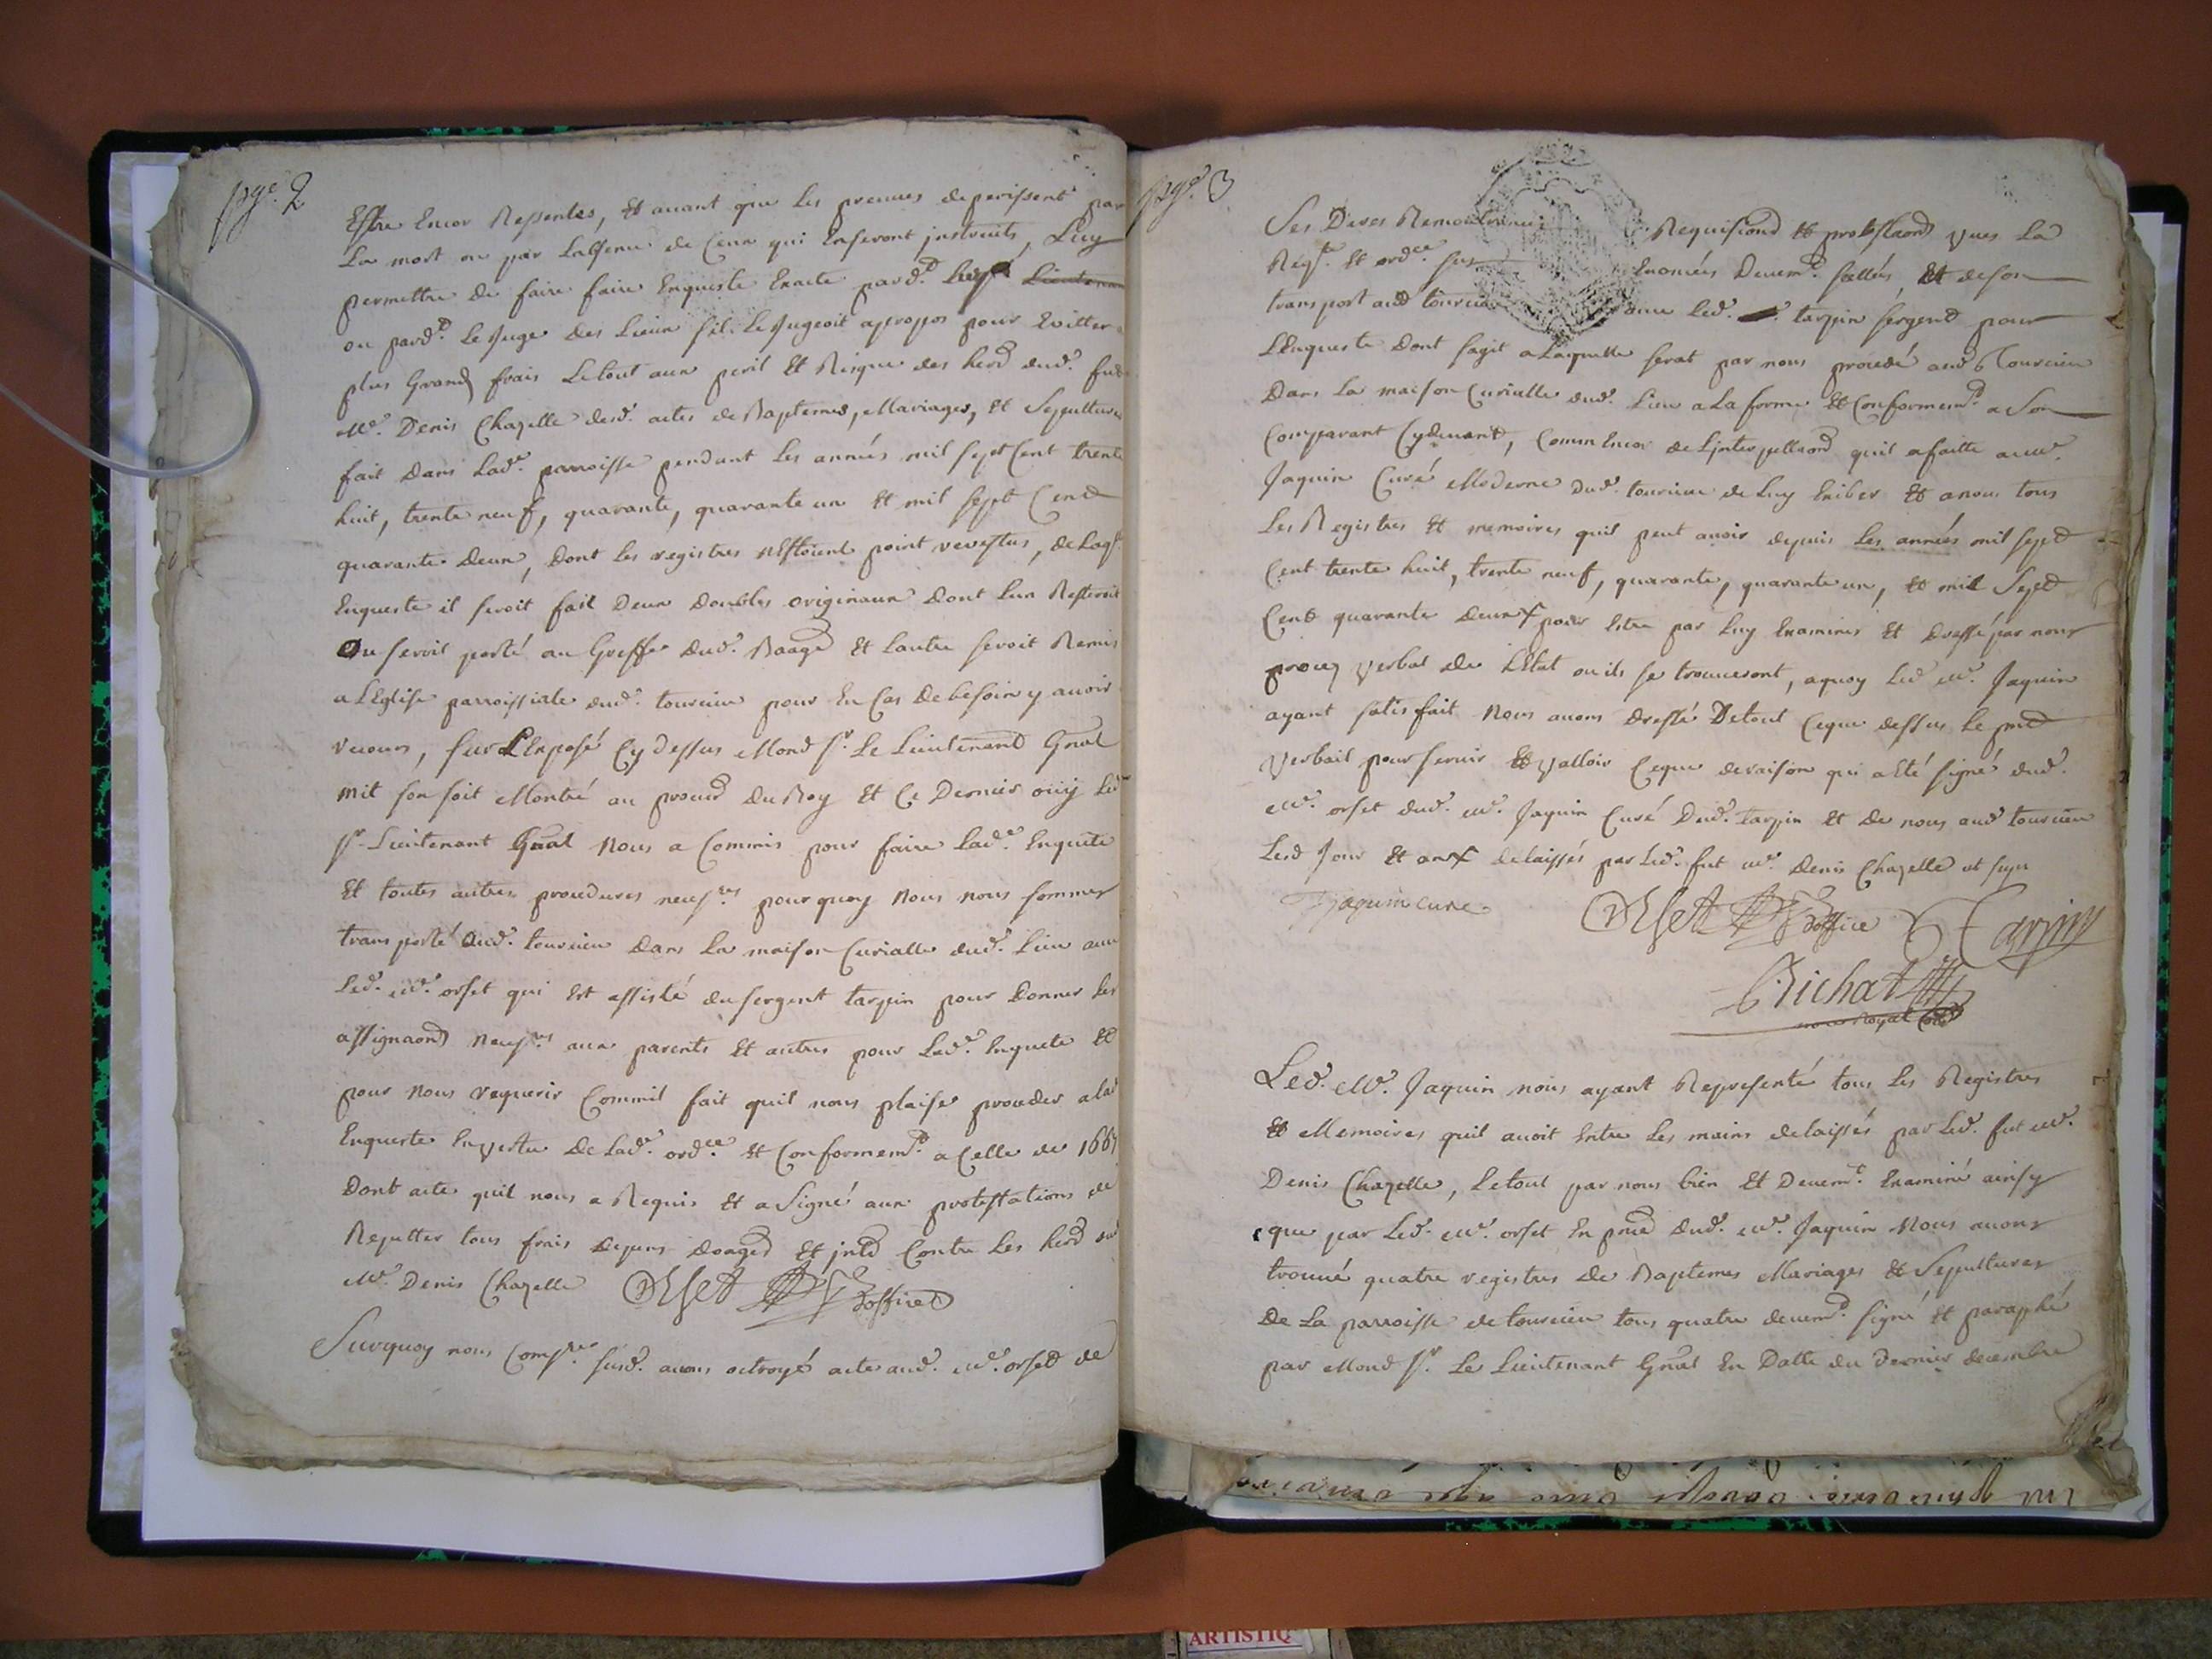 pge. 2
Estre Encor Ressentes, Et auant que les preuues deperissent par
La mort ou par Labsence de Ceux qui Enseront instruits, Luy
permettre de faire faire Enqueste Exacte pard.t Lieutenan
ou pard.t le Juge des Lieux sil le Jugeoit apropos pour Euitter
plus Grands frais Letout aux peril Et Risque des herd dud. fut
Me. Denis Chapelle desd. actes de Baptemes, Mariages, Et Sepultures
fait Dans Lade. parroisse pendant Les années mil sept Cent trente
huit, trente neuf, quarante, quarante un Et mil sept Cent
quarante Deux, Dont les registres nEstoient point revestus, de Laq.
Enqueste il seroit fait Deux Doubles originaux Dont lun Resteroit
Ou seroit porté au Greffe Dud. Baage Et Lautre seroit Remis
a LEglise parroissiale dud. tourcieu pour En Cas De besoin y auoir
recours, sur LExposé Cy dessus Mond sr. Le Lieutenant Gnal
mit son soit Montré au procur Du Roy Et Ce Dernier ouy Led
sr. Lieutenant Gnal Nous a Commis pour faire Lade. Enquete
Et toutes autres procedures necess.res pour quoy Nous nous sommes
transporté aud. tourcieu Dans La maison Curialle dud. Lieu auec
Led. Me. orset qui Est assisté du sergent tarpin pour Donner les
assignaons necess.res aux parents Et autres pour Lade. Enquete Et
pour Nous requerir Commil fait quil nous plaise proceder a lad
Enqueste En vertu De Lade. ord.ce Et Conformem.t a Celle de 1667
Dont acte quil nous a Requis Et a Signé aux protestations de
Reputter tous frais depens Domages Et jntd Contre Les herd dud
Me. Denis Chapelle Orset doffice
Surquoy nous Comre. susd. auons octroyé acte aud. Me. orset de
pge. 3
Ses Dires Remontrances Requisitions Et protestaons vues La
Reqt. Et ord.ce sus Enoncées Deuem.t sellés, Et de son
transport aud tourcieu auec Led. tarpin sergent pour
LEnqueste Dont sagit a Laquelle serat par nous procedé aud tourcieu
Dans La maison Curialle dud. Lieu a La forme Et Conformem.t a Son
Comparant Cydeuant, Comm Encor de Linterpellaon quil a faitte a Me.
Jaquin Curé Moderne dud. tourcieu de Luy Exiber Et a nous tous
Les Registres Et memoires quil peut auoir depuis Les années mil sept
Cent trente huit, trente neuf, quarante, quarante un, Et mil Sept
Cent quarante deux pour Estre par Luy Examinés Et Dressé par nous
proces verbal de LEtat ou ils se trouueront, aquoy Led Me. Jaquin
ayant satisfait Nous auons Dressé De tout Ceque dessus Le pnt
Verbail pour seruir Et valloir Ceque de raison qui a Eté signé dud.
Me. orset dud. Me. Jaquin Curé Dud. tarpin Et De nous aud tourcieu
Lesd Jour Et an delaissés par Led. fut Me. Denis Chapelle
Jaquin curé Orset doffice Tarpin
Bichat
nore Royal Com
Led. Me. Jaquin nous ayant Representé tous les Registres
Et Memoires quil auoit Entre Les mains delaissés par Led. fut Me.
Denis Chapelle, Letout par nous bien Et Deuem.t Examiné ainsy
que par Led. Me. orset En pnce Dud. Me. Jaquin Nous auons
trouué quatre registres de Baptemes Mariages Et Sepultures
De La parroisse de tourcieu tous quatre deuem.t signé Et paraphé
par Mond sr. Le Lieutenant Gnal En Datte du Dernier decembre
ARTISTIQ